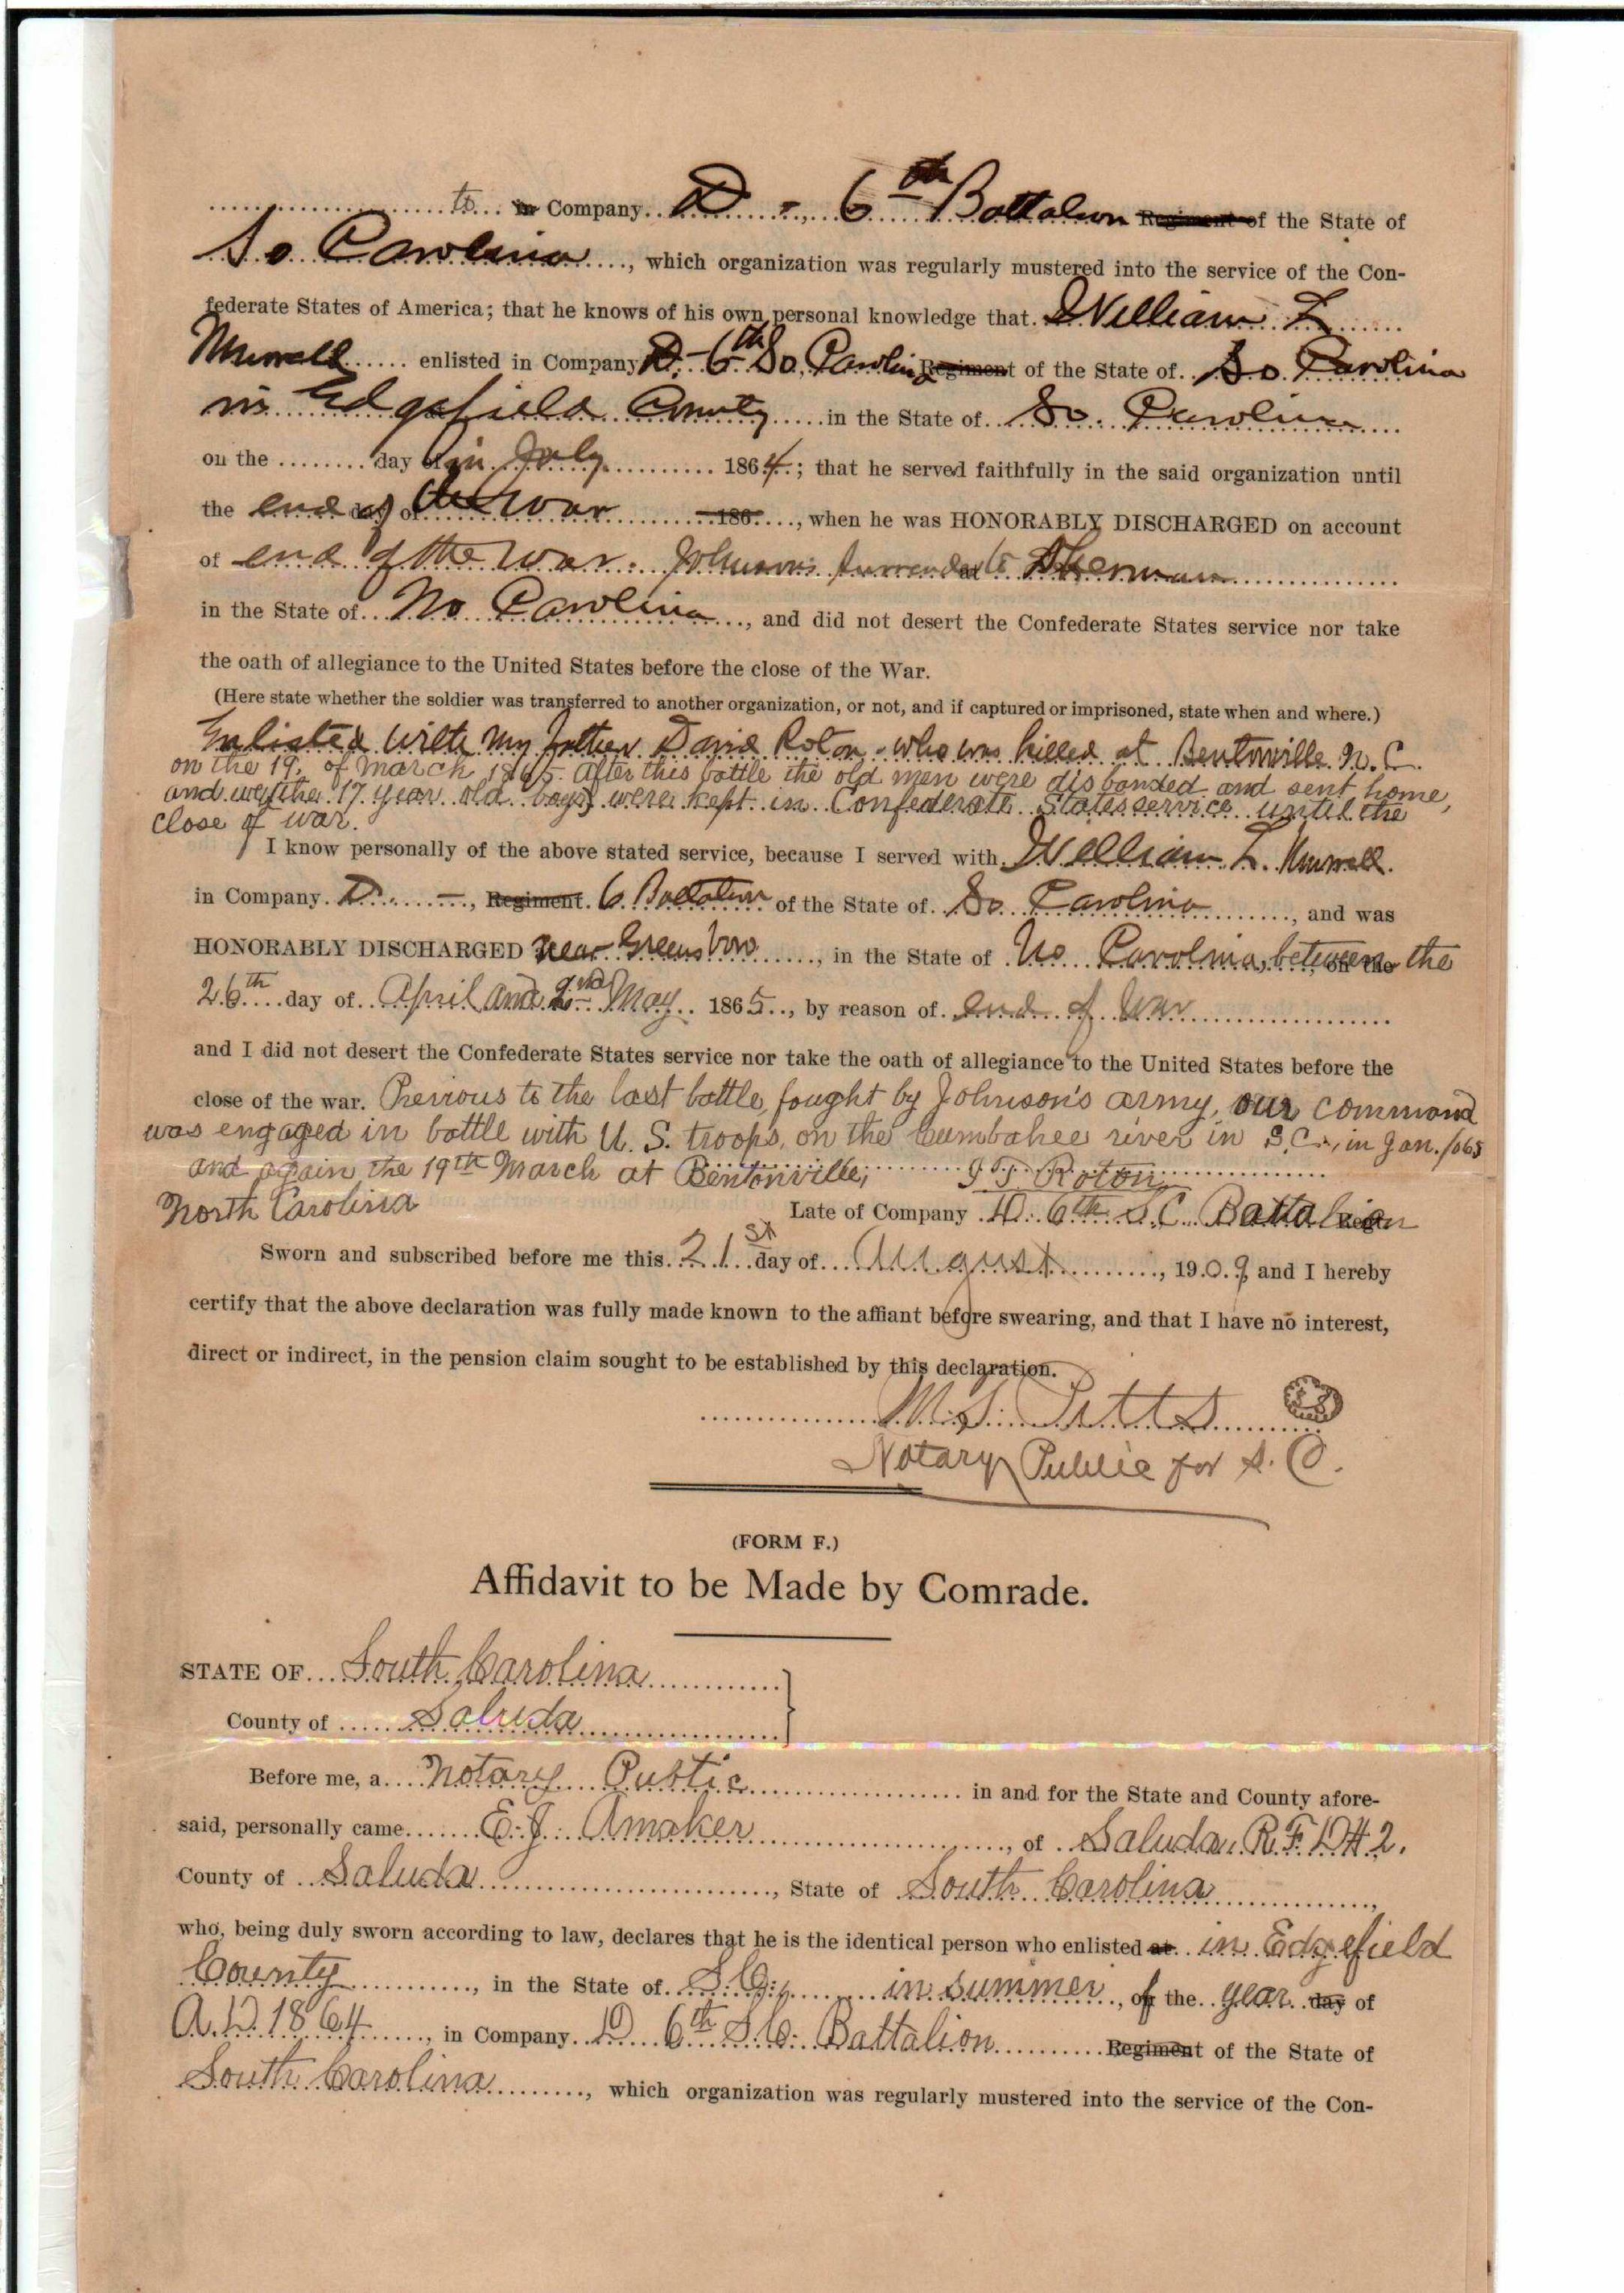 to in Company D - 6th Battalion Regiment of the State of
So Carolina, which organization was regularly mustered into the service of the Con-
federate States of America; that he knows of his own personal knowledge that William L
enlisted in Company D - 6th So. Carolina Regiment of the State of So Carolina
in Edgefield County in the State of So. Carolina
on the day of in July 1864; that he served faithfully in the said organization until
the end of day of the War 186, when he was HONORABLY DISCHARGED on account
of end of the War. Johnson's Surrender at to Sherman
in the State of No Carolina, and did not desert the Confederate States service nor take
the oath of allegiance to the United States before the close of the War.
(Here state whether the soldier was transferred to another organization, or not, and if captured or imprisoned, state when and where.)
Enlisted with my father David Roton - who was killed at Bentonville N.C.
on the 19. of March 1865. After this battle the old men were disbanded and sent home,
and we (the 17 year old boys) were kept in Confederate States service until the
close of war.
I know personally of the above stated service, because I served with William L.
in Company D. -, Regiment 6 Battalion of the State of So Carolina, and was
HONORABLY DISCHARGED near Greensboro, in the State of No Carolina, between on the the
26th day of April and 2nd May 1865, by reason of end of War
and I did not desert the Confederate States service nor take the oath of allegiance to the United States before the
close of the war. Previous to the last battle, fought by Johnson's army, our command
was engaged in battle with U. S. troops, on the Cumbahee river in S.C., in Jan. 1865
and again the 19th March at Bentonville, J T Roton
North Carolina Late of Company D. 6th S.C. Battalion Regt.
Sworn and subscribed before me this 21st day of August, 1909, and I hereby
certify that the above declaration was fully made known to the affiant before swearing, and that I have no interest,
direct or indirect, in the pension claim sought to be established by this declaration.
M. S. Pitts
Notary Public for S. C.
(FORM F.)
Affidavit to be Made by Comrade.
STATE OF South Carolina
County of Saluda
Before me, a Notary Public in and for the State and County afore-
said, personally came E. J. Amaker, of Saluda, R.F.D #2.
County of Saluda, State of South Carolina,
who, being duly sworn according to law, declares that he is the identical person who enlisted at in Edgefield
County, in the State of S.C., in summer, of the year day of
A.D. 1864, in Company D 6th S.C. Battalion Regiment of the State of
South Carolina, which organization was regularly mustered into the service of the Con-